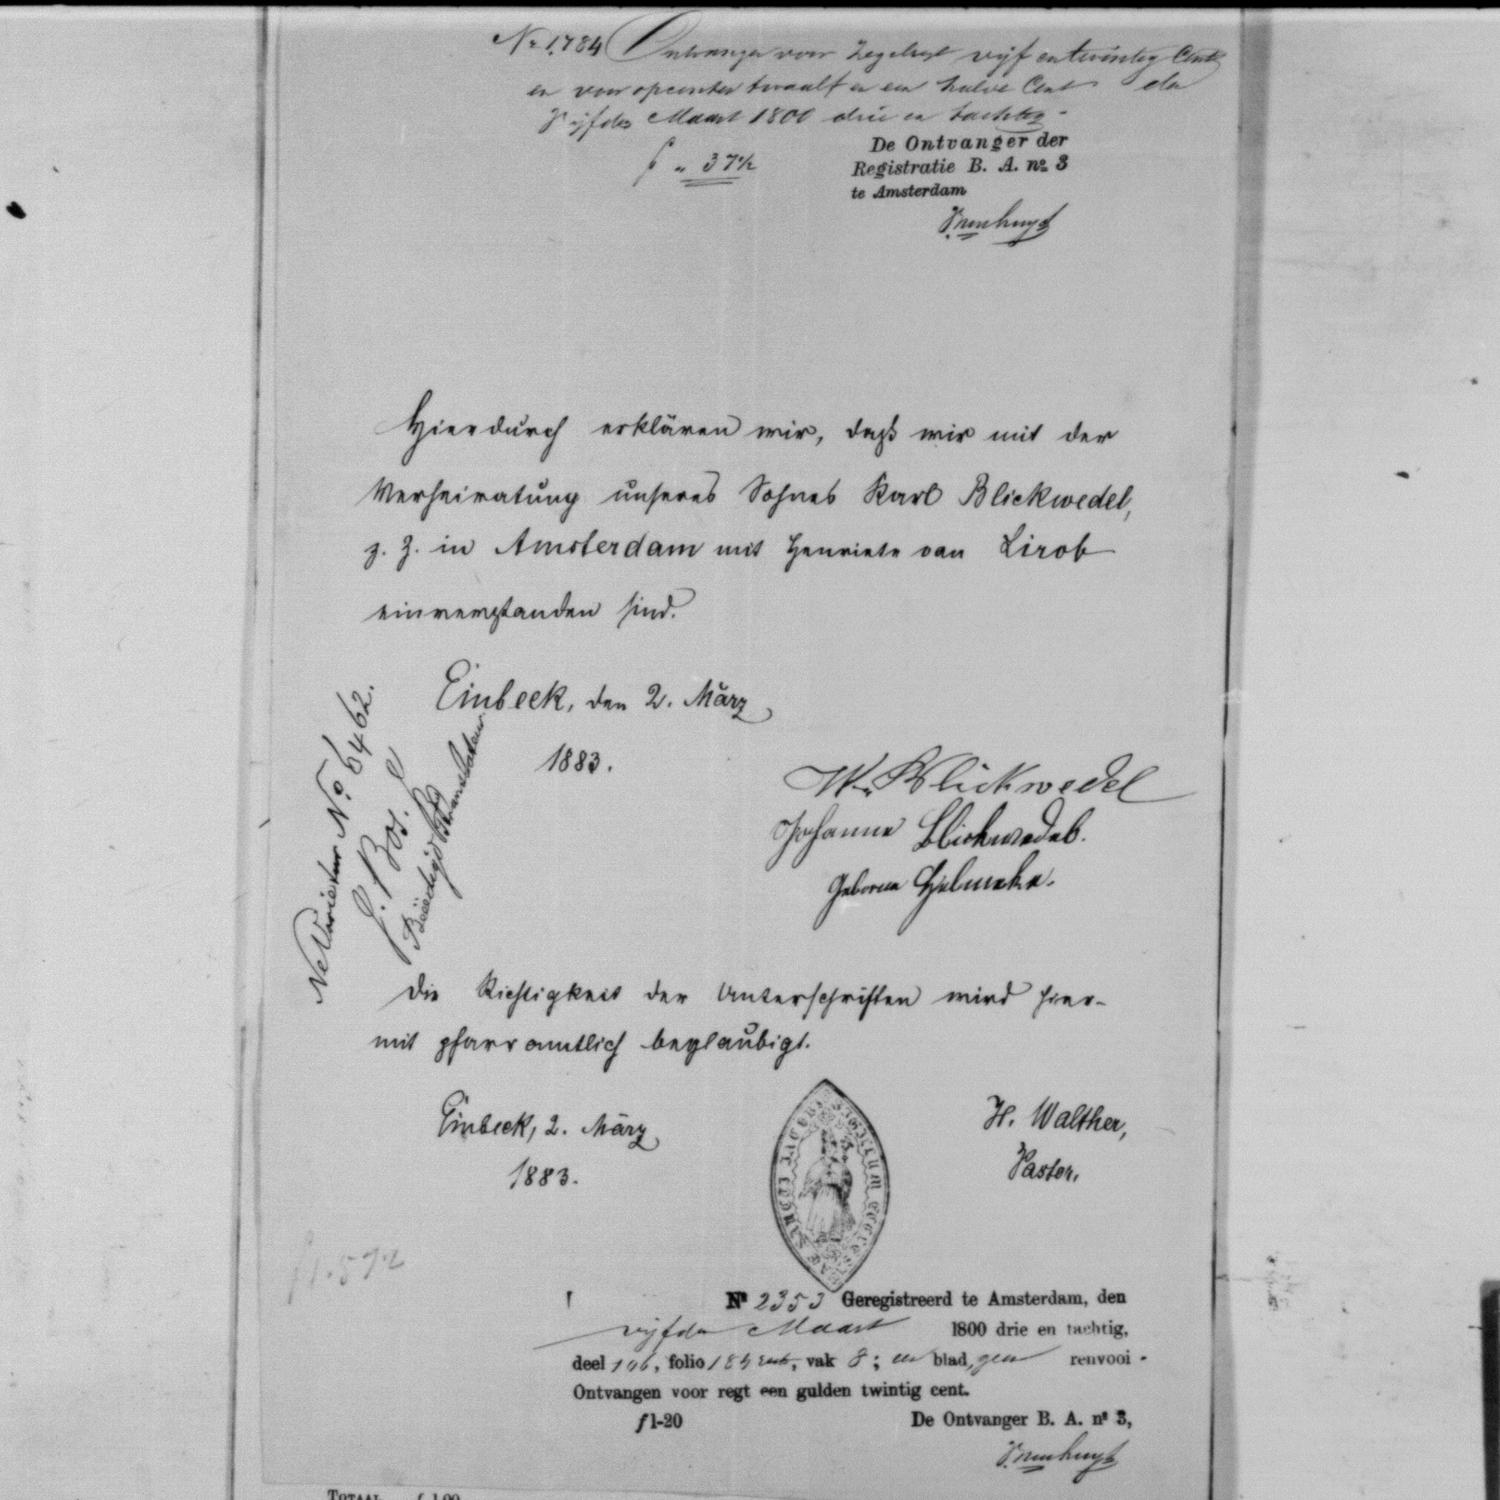 No 1784 Ontvangen voor Zegelregt vijf en twintig Cent
en voor opcenten twaalf en een halve Cent den
Vijfden Maart 1800 drie en tachtig -
f „ 37½
De Ontvanger der
Registratie B. A. no 3
te Amsterdam
Hierdurch erklären wir, daß wir mit der
Verheiratung unseres Sohnes Karl Blickwedel,
z. Z. in Amsterdam mit Henriete van Lirob
einverstanden sind.
Einbeck, den 2. März
1883.
Ne Varietur No. 6462.
J. Bos.
Beëedigd Translateur
W. Blickwedel
Johanne Blickwedel.
geborne Helmcke.
Die Richtigkeit der Unterschriften wird hier-
mit pfarramtlich beglaubigt.
Einbeck, 2. März
1883.
H. Walther,
Pastor.
SIGILLUM ECCLESIAE SANCTI JACOBI
f1.57½
No 2353 Geregistreerd te Amsterdam, den
vijfden Maart 1800 drie en tachtig,
deel 106, folio 185, vak 8; een blad, geen renvooi -
Ontvangen voor regt een gulden twintig cent.
f 1-20
De Ontvanger B. A. no 3,
TOTAAL f 1.00